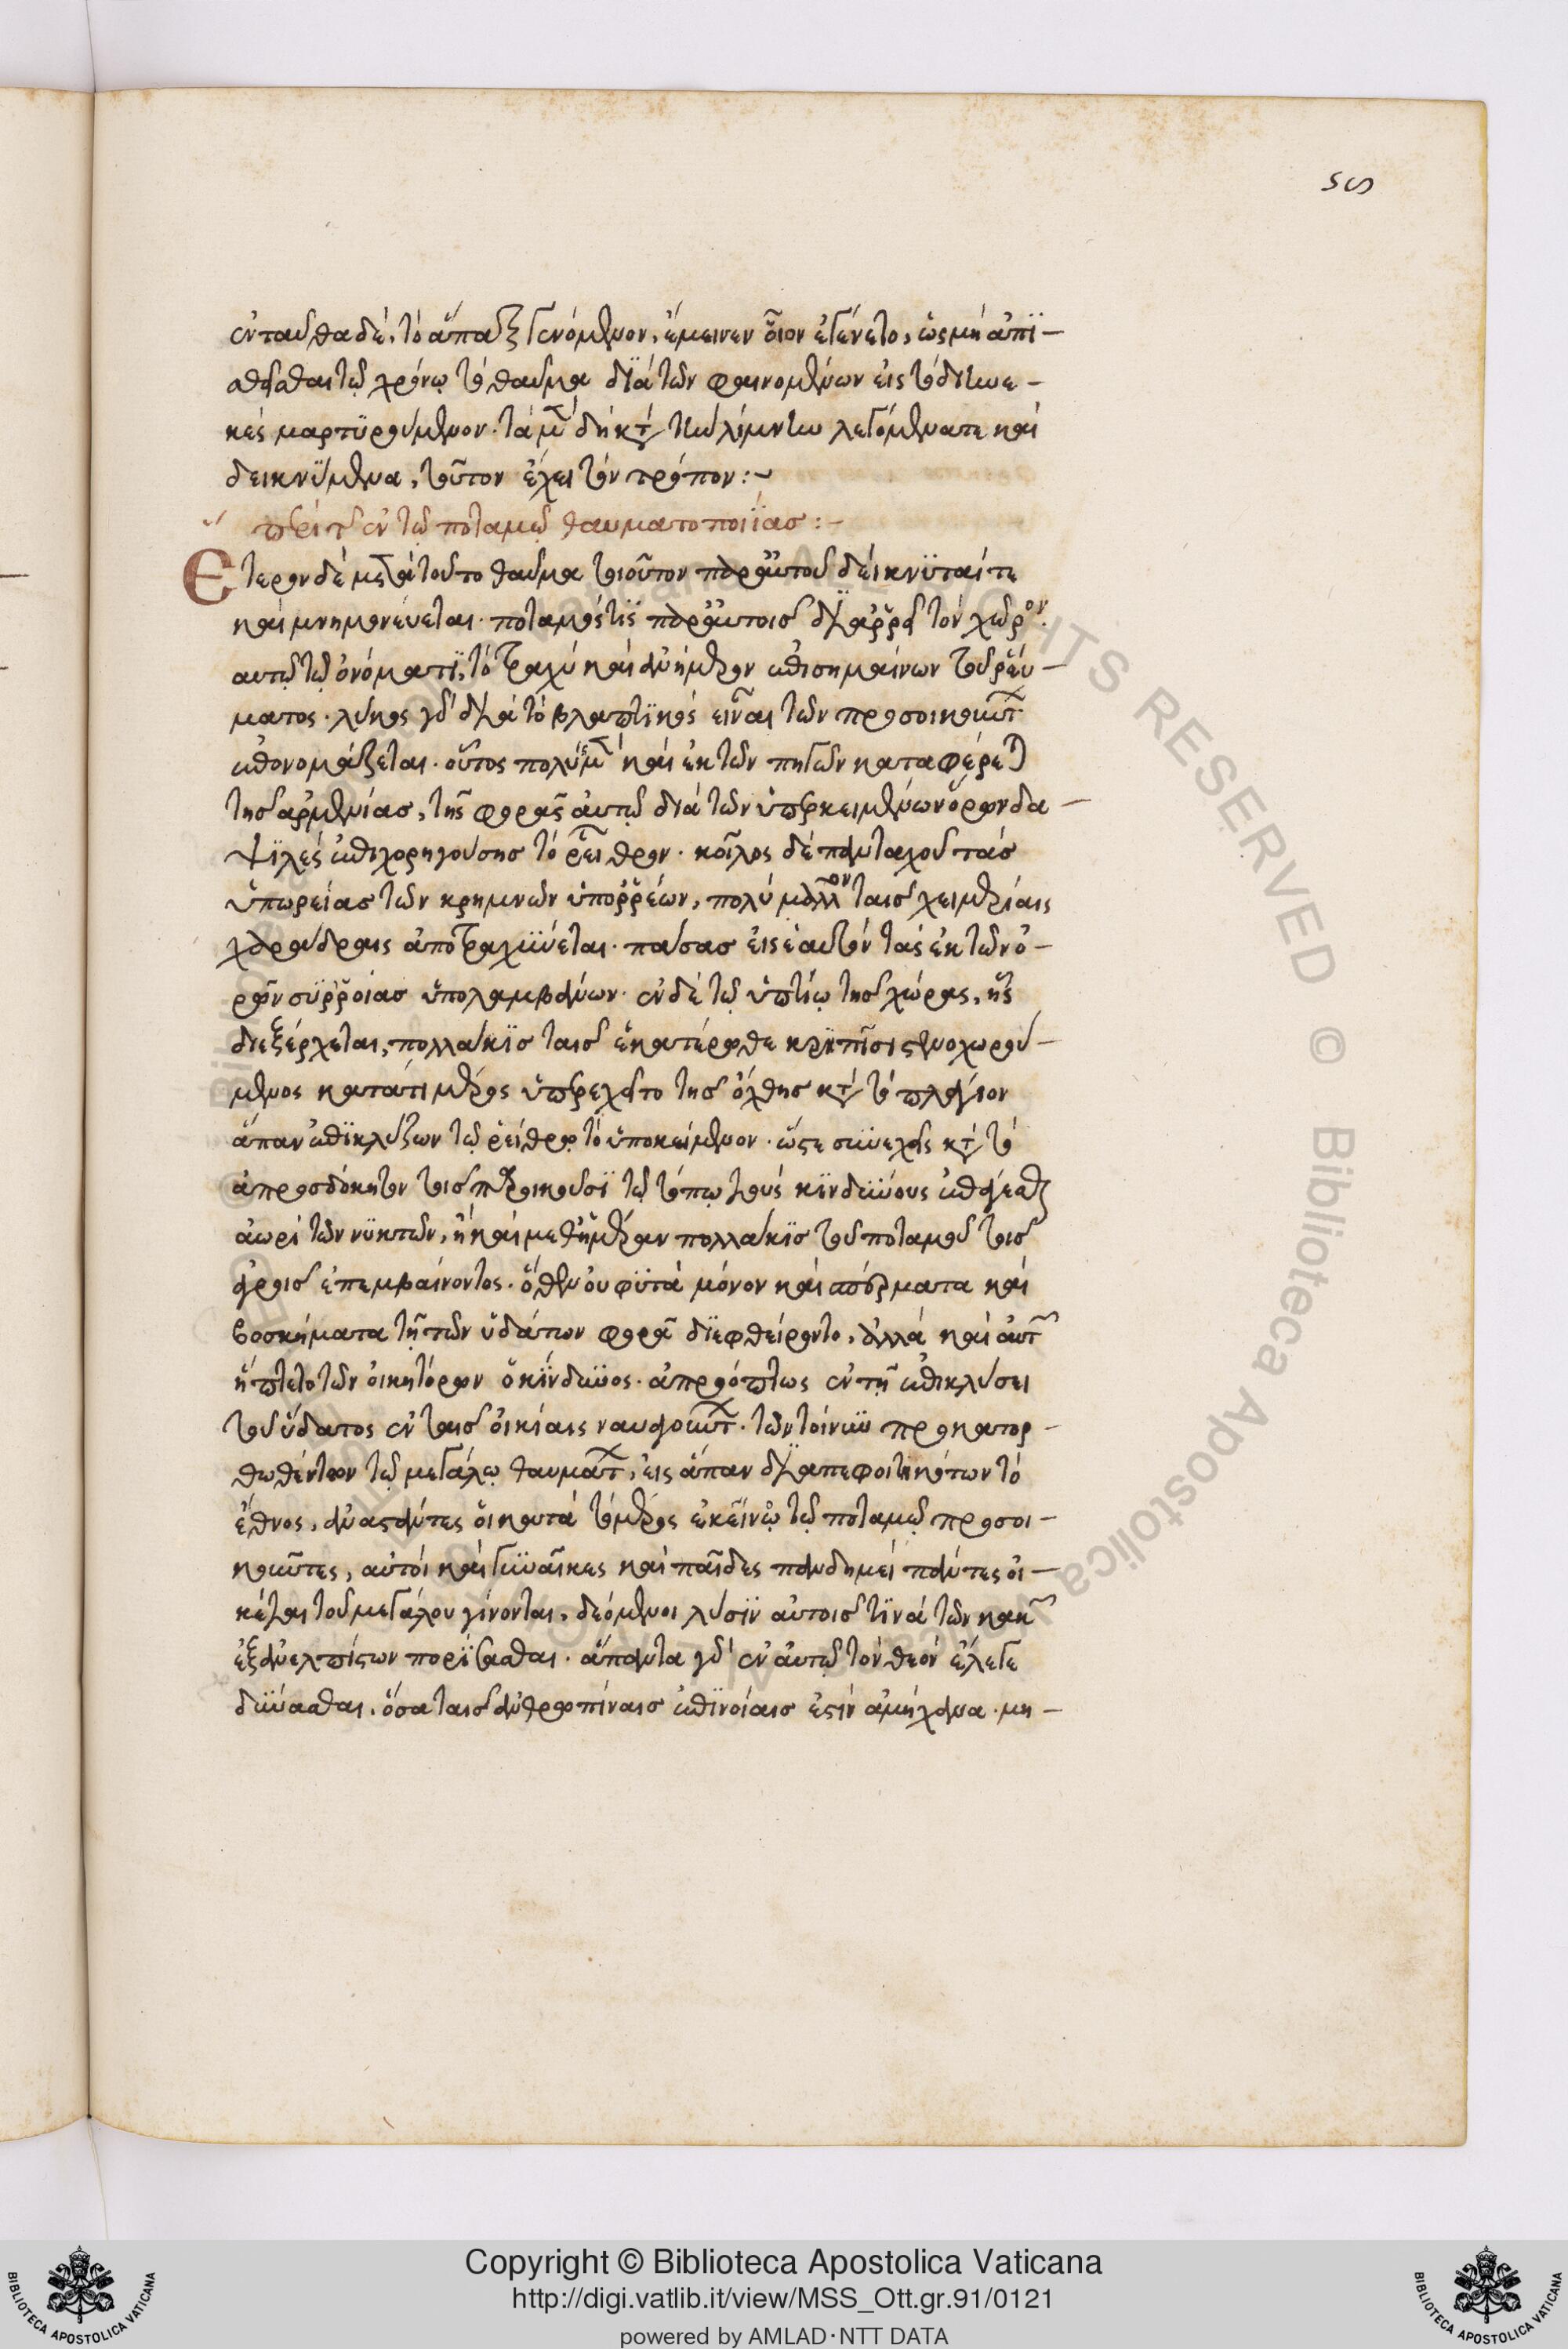 ϛϛ
ἐνταῦθα δὲ, τὸ ἅπαξ γενόμενον, ἔμεινεν οἷον ἐγένετο, ὡς μὴ ἀπι-
στεῖσθαι τῷ χρόνῳ τὸ θαῦμα διὰ τῶν φαινομένων εἰς τὸ διηνε-
κὲς μαρτυρούμενον. τὰ μὲν δὴ κατὰ τὴν λίμνην λεγόμενα τε καὶ
δεικνύμενα, τοῦτον ἔχει τὸν τρόπον:~
περὶ τῆς ἐν τῷ ποταμῷ θαυματοποιίας:-
Ετερον δὲ μετὰ τοῦτο θαῦμα τοιοῦτον παρ' αὐτοῦ δείκνυταί τε
καὶ μνημονεύεται. ποταμός τις παρ' αὐτοῖς διαρρεῖ τὸν χῶρον.
αὐτῷ τῷ ὀνόματι, τὸ τραχὺ καὶ ἀνήμερον ἐπισημαίνων τοῦ ῥεύ-
ματος. λύκος γὰρ διὰ τὸ βλαπτικὸς εἶναι τῶν προσοικούντων
ἐπονομάζεται. οὗτος πολὺς μὲν καὶ ἐκ τῶν πηγῶν καταφέρεται
τῆς ἀρμενίας, τῆς φορᾶς αὐτῷ διὰ τῶν ὑπερκειμένων ὀρῶν δα-
ψιλὲς ἐπιχορηγούσης τὸ ῥεῖθρον. κοῖλος δὲ πανταχοῦ τὰς
ὑπωρείας τῶν κρημνῶν ὑπορρέων, πολὺ μᾶλλον ταῖς χειμερίαις
χαράδραις ἀποτραχύνεται. πάσας εἰς ἑαυτὸν τὰς ἐκ τῶν ὀ-
ρῶν συρροίας ὑπολαμβάνων. ἐν δὲ τῷ ὑπτίῳ τῆς χώρας, ἧς
διεξέρχεται, πολλάκις ταῖς ἑκατέρωθε κρηπῖσι στενοχωρού-
μενος κατά τι μέρος ὑπερεχεῖτο τῆς ὄχθης κατὰ τὸ πλάγιον
ἅπαν ἐπικλύζων τῷ ῥείθρῳ τὸ ὑποκείμενον. ὥστε συνεχεῖς κατὰ τὸ
ἀπροσδόκητον τοῖς παροικοῦσι τῷ τόπῳ τοὺς κινδύνους ἐπάγεσθαι
ἀωρὶ τῶν νυκτῶν, ἢ καὶ μεθημέραν πολλάκις τοῦ ποταμοῦ τοῖς
ἀγροῖς ἐπεμβαίνοντος. ὅθεν οὐ φυτὰ μόνον καὶ σπέρματα καὶ
βοσκήματα τῇ τῶν ὑδάτων φορᾷ διεφθείροντο, ἀλλὰ καὶ αὐτῶν
ἥπτετο τῶν οἰκητόρων ὁ κίνδυνος. ἀπροόπτως ἐν τῇ ἐπικλύσει
τοῦ ὕδατος ἐν ταῖς οἰκίαις ναυαγούντων. τῶν τοίνυν προκατορ-
θωθέντων τῷ μεγάλῳ θαυμάτων, εἰς ἅπαν διαπεφοιτηκότων τὸ
ἔθνος, ἀναστάντες οἱ κατὰ τὸ μέρος ἐκεῖνο τῷ ποταμῷ προσοι-
κοῦντες, αὐτοὶ καὶ γυναῖκες καὶ παῖδες πανδημεὶ πάντες οἰ-
κέται τοῦ μεγάλου γίνονται, δεόμενοι λύσιν αὐτοῖς τινὰ τῶν κακῶν
ἐξ ἀνελπίστων πορίσασθαι. ἅπαντα γὰρ ἐν αὐτῷ τὸν θεὸν ἔλεγε
δύνασθαι, ὅσα ταῖς ἀνθρωπίναις ἐπινοίαις ἐστὶν ἀμήχανα. μη-
Copyright © Biblioteca Apostolica Vaticana
http://digi.vatlib.it/view/MSS_Ott.gr.91/0121
powered by AMLAD·NTT DATA